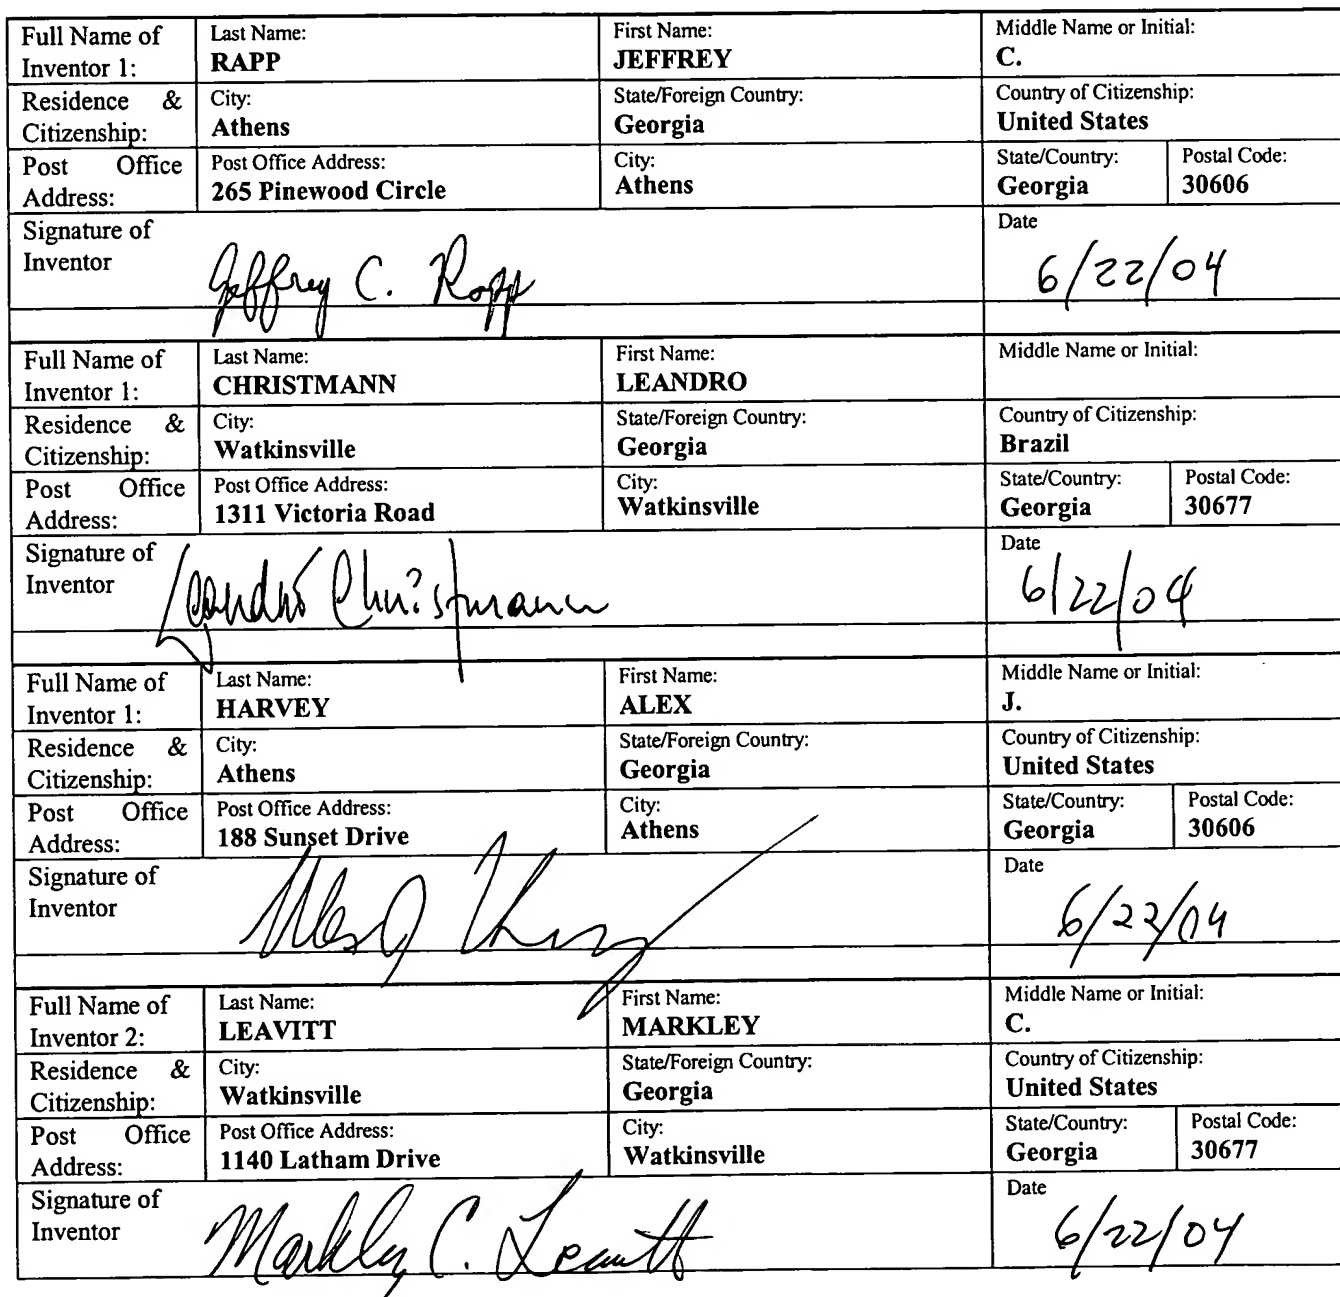 Full Name of Inventor 1: Last Name: RAPP First Name: JEFFREY Middle Name or Initial: C.
Residence & Citizenship: City: Athens State/Foreign Country: Georgia Country of Citizenship: United States
Post Office Address: Post Office Address: 265 Pinewood Circle City: Athens State/Country: Georgia Postal Code: 30606
Signature of Inventor Jeffrey C. Rapp Date 6/22/04
Full Name of Inventor 1: Last Name: CHRISTMANN First Name: LEANDRO Middle Name or Initial:
Residence & Citizenship: City: Watkinsville State/Foreign Country: Georgia Country of Citizenship: Brazil
Post Office Address: Post Office Address: 1311 Victoria Road City: Watkinsville State/Country: Georgia Postal Code: 30677
Signature of Inventor Leandro Christmann Date 6/22/04
Full Name of Inventor 1: Last Name: HARVEY First Name: ALEX Middle Name or Initial: J.
Residence & Citizenship: City: Athens State/Foreign Country: Georgia Country of Citizenship: United States
Post Office Address: Post Office Address: 188 Sunset Drive City: Athens State/Country: Georgia Postal Code: 30606
Signature of Inventor Date 6/22/04
Full Name of Inventor 2: Last Name: LEAVITT First Name: MARKLEY Middle Name or Initial: C.
Residence & Citizenship: City: Watkinsville State/Foreign Country: Georgia Country of Citizenship: United States
Post Office Address: Post Office Address: 1140 Latham Drive City: Watkinsville State/Country: Georgia Postal Code: 30677
Signature of Inventor Markley C. Leavitt Date 6/22/04